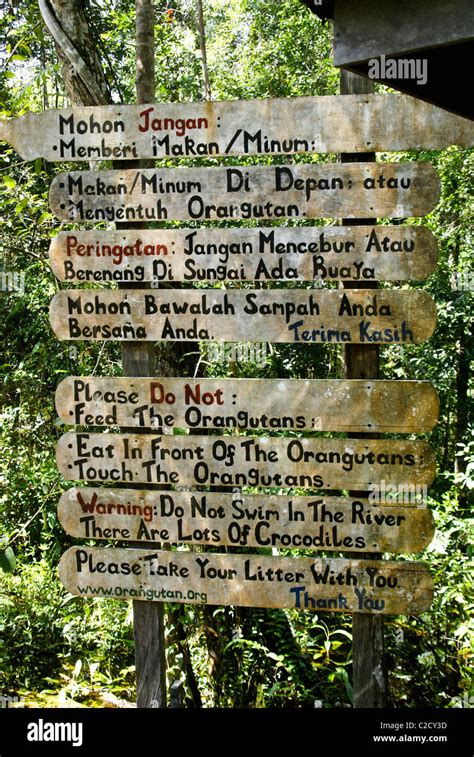 Mohon Jangan :
• Memberi Makan/Minum:
• Makan/Minum Di Depan; atau
• Menyentuh Orangutan.
Peringatan : Jangan Mencebur Atau
Berenang Di Sungai Ada Buaya
Mohon Bawalah Sampah Anda
Bersama Anda. Terima Kasih
Please Do Not :
• Feed The Orangutans;
• Eat In Front Of The Orangutans;
• Touch The Orangutans.
Warning: Do Not Swim In The River
There Are Lots Of Crocodiles.
Please Take Your Litter With You
www.orangutan.org Thank You
alamy
Image ID: C2CY3D
www.alamy.com